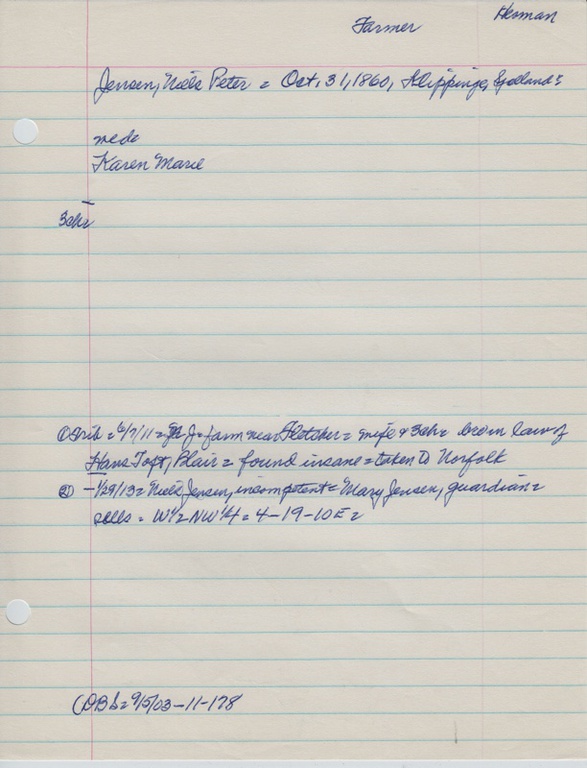 Farmer Herman
Jensen, Niels Peter = Oct, 31, 1860, Klippinge, Sjelland =
med =
Karen Marie
3 ch =
① Trib = 6/7/11 = J = farm near Fletcher = wife & 3 ch = bro in law of
Hans Toft, Blair = found insane = taken to Norfolk
② - 1/29/13 = Niels Jensen, incompetent = Mary Jensen, guardian =
sells = W½ NW¼ = 4-19-10E =
(DBb = 9/5/03-11-178